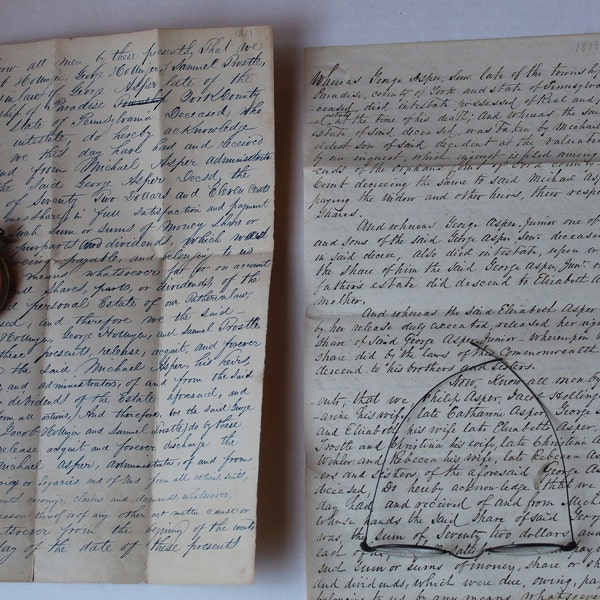 1839
now all men by these presents, That we
Hollinger George Hollinger, Samuel Trostle,
in law of George Asper late of the
ship of Paradise Township York County
State of Pennsylvania Deceased, who
intestate do hereby acknowledge
we this day have had and received
and from Michael Asper administrator
the said George Asper Decsd, the
of Seventy two Dollars and Eleven Cents
in full satisfaction and payment
such Sum or Sums of Money Share or
purparts and dividends, which was
owing payable, and belonging to us
means whatsoever of for or on account
full shares, parts, or dividends, of the
personal Estate of our Father in law,
and therefore we the said
Hollinger, George Hollinger, and Samuel Trostle
these presents, release, acquit, and forever
the said Michael Asper, his heirs,
and administrators, of and from the Said
dividends of the Estate aforesaid, and
from all actions, And therefore, we the said George
Jacob Hollinger and Samuel Trostle, do by these
release acquit and forever discharge the
Michael Asper, administrator, of and from
or legacies and of and from all actions suits,
reckonings, claims and demands whatsoever,
reason thereof or any other act matter cause or
whatsoever from the begining of the world
day of the date of these presents
1839
Whereas George Asper, Senr late of the township
Paradise, county of York and state of Pennsylvania
ceased died intestate possessed of Real and
estate at the time of his death; And whereas the
estate of said deceased, was taken by Michael
eldest son of said decedent at the valuation
by an inquest, which inquest
Court decreeing the same to said Michael Asper
paying the Widow and other heirs, their respective
Shares.
And whereas George Asper, Junior one of
and sons of the said George Asper Senr deceased
in said decree, also died intestate, upon
the share of him the said George Asper, Junr of
fathers estate did descend to Elizabeth
mother.
And whereas the said Elizabeth Asper
by her release duly executed, released her
Share of Said George Asper Junior - Whereupon
share did by the laws of this Commonwealth
descend to his brothers and sisters.
Now, Know all men by
that we Philip Asper, Jacob Hollinger
his wife, late Catharine Asper, George
and Elizabeth his wife late Elizabeth Asper
Trostle and Christina his wife, late Christina
and Rebecca his wife, late Rebecca
and Sisters, of the aforesaid George
deceased, Do hereby acknowledge that we
day had and received of and from Michael
whose hands the Said Share of said George
was, the Sum of Seventy two dollars and
each of
such Sum or Sums of money, share or
and dividends, which were due, owing,
belonging to us by any means whatsoever